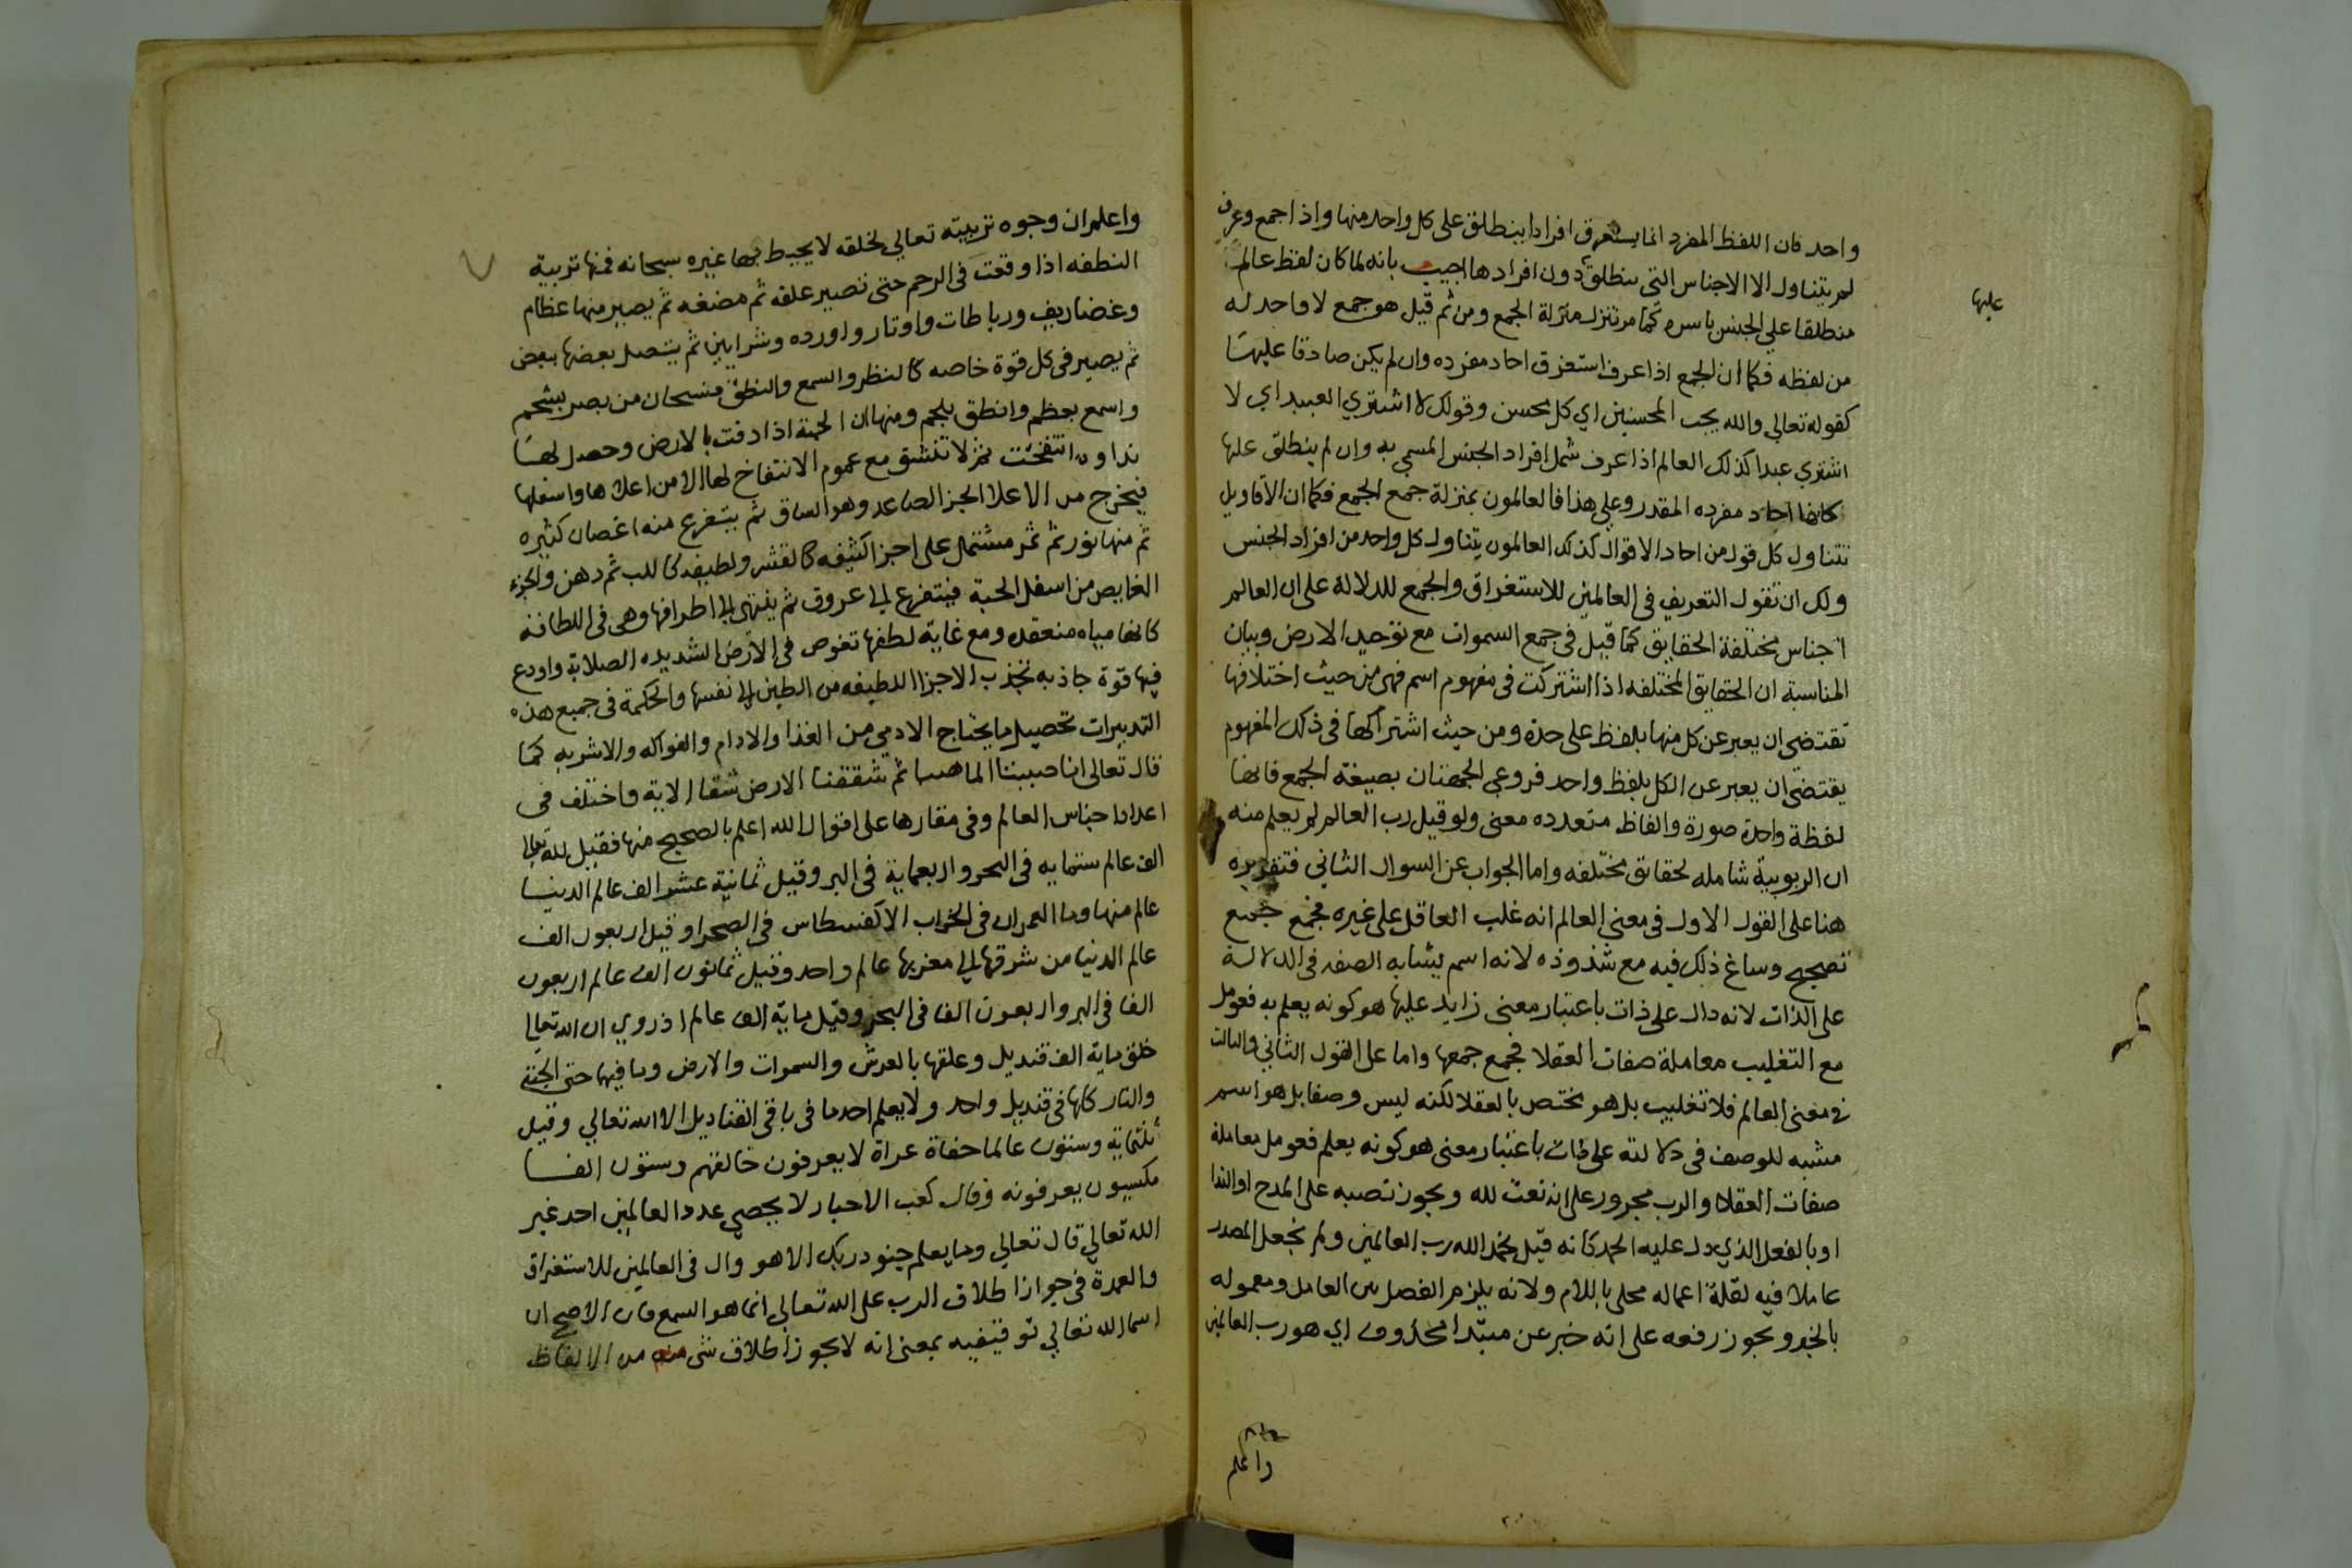 واحد فان اللفظ المفرد انما يستغرق افرادا ينطلق على كل واحد منها واذا جمع وعرف
لم يتناول الا الاجناس التي ينطلق دون افرادها اجيب بانه لما كان لفظ عالم
عليها
منطلقا علي الجنس باسره كما مر تنزل منزلة الجمع ومن ثم قيل هو جمع لا واحد له
من لفظه فكما ان الجمع اذا عرف استغرق احاد مفرده وان لم يكن صادقا عليها
كقوله تعالي والله يحب المحسنين اي كل محسن وقولك لا اشتري العبيد اي لا
اشتري عبدا كذلك العالم اذا عرف شمل افراد الجنس المسمي به وان لم ينطلق عليها
كانها احاد مفرده المقدر وعلي هذا فالعالمون بمنزلة جمع الجمع فكما ان الاقاويل
تتناول كل قول من احاد الاقوال كذلك العالمون يتناول كل واحد من افراد الجنس
ولك ان تقول التعريف في العالمين للاستغراق والجمع للدلالة على ان العالم
اجناس مختلفة الحقايق كما قيل في جمع السموات مع توحيد الارض وبيان
المناسبة ان الحقايق المختلفه اذا اشتركت في مفهوم اسم فهي من حيث اختلافها
تقتضي ان يعبر عن كل منها بلفظ على حدة ومن حيث اشتراكها في ذلك المفهوم
يقتضي ان يعبر عن الكل بلفظ واحد فروعي الجهتان بصيغة الجمع فانها
لفظة واحدة صورة والفاظ متعدده معنى ولو قيل رب العالم لم يعلم منه
ان الربوبية شامله لحقائق مختلفه واما الجواب عن السوال الثاني فتقريره
هنا على القول الاول في معنى العالم انه غلب العاقل على غيره فجمع جمع
تصحيح وساغ ذلك فيه مع شذوذه لانه اسم يشابه الصفه في الدلالة
على الذات لانه دال على ذات باعتبار معنى زايد عليها هو كونه يعلم به فعومل
مع التغليب معاملة صفات العقلا فجمع جمعها واما على القول الثاني والثالث
في معنى العالم فلا تغليب بل هو مختص بالعقلا لكنه ليس وصفا بل هو اسم
مشبه للوصف في دلالته على ذات باعتبار معنى هو كونه يعلم فعومل معاملة
صفات العقلا والرب مجرور على انه نعت لله ويجوز نصبه على المدح او الندا
او بالفعل الذي دل عليه الحمد كانه قيل نحمد الله رب العالمين ولم نجعل المصدر
عاملا فيه لقلة اعماله محلى باللام ولانه يلزم الفصل بين العامل ومعموله
بالخبر ويجوز رفعه على انه خبر عن مبتدا محذوف اي هو رب العالمين
واعلم
واعلم ان وجوه تربيته تعالي لخلقه لا يحيط بها غيره سبحانه فمنها تربية
النطفه اذا وقعت في الرحم حتى تصير علقه ثم مضغه ثم يصير منها عظام
وغضاريف ورباطات واوتار واورده وشرايين ثم يتصل بعضها ببعض
ثم يصير في كل قوة خاصه كالنظر والسمع والنطق فسبحان من بصر بشحم
واسمع بعظم وانطق بلحم ومنها ان الحبة اذا دفنت بالارض وحصل لها
نداوة انتفخت ثم لا تنشق مع عموم الانتفاخ لها الا من اعلاها واسفلها
فيخرج من الاعلا الجز الصاعد وهو الساق ثم يتفرع منه اغصان كثيره
ثم منها نور ثم ثمر مشتمل على اجزا كثيفه كالقشر ولطيفه كاللب ثم دهن والجزء
الغايص من اسفل الحبة فيتفرع الي عروق ثم ينتهى الي اطرافها وهى في اللطافة
كانها مياه منعقده ومع غاية لطفها تغوص في الارض الشديده الصلابة واودع
فيها قوة جاذبه تجذب الاجزا اللطيفه من الطين الي نفسها والحكمة في جميع هذه
التدبيرات تحصيل ما يحتاج الادمي من الغذا والادام والفواكه والاشربه كما
قال تعالى انا صببنا الما صبا ثم شققنا الارض شقا الاية واختلف في
اعداد اجناس العالم وفي مقارها على اقوال الله اعلم بالصحيح منها فقيل لله تعالي
الف عالم ستمايه في البحر واربعماية في البر وقيل ثمانية عشر الف عالم الدنيا
عالم منها وما العمران في الخراب الا كفسطاس في الصحرا وقيل اربعون الف
عالم الدنيا من شرقها الي مغربها عالم واحد وقيل ثمانون الف عالم اربعون
الفا في البر واربعون الفا في البحر وقيل ماية الف عالم اذ روي ان الله تعالي
خلق ماية الف قنديل وعلقها بالعرش والسموات والارض وما فيها حتى الجنة
والنار كلها في قنديل واحد ولا يعلم احد ما في باقي القناديل الا الله تعالي وقيل
ثلثماية وستون عالما حفاة عراة لا يعرفون خالقهم وستون الفا
مكسيون يعرفونه وقال كعب الاحبار لا يحصي عدد العالمين احد غير
الله تعالي قال تعالي وما يعلم جنود ربك الا هو وال في العالمين للاستغراق
والعمدة في جواز اطلاق الرب على الله تعالي انما هو السمع فان الاصح ان
اسما الله تعالي توقيفيه بمعنى انه لا يجوز اطلاق شى منه من الالفاظ